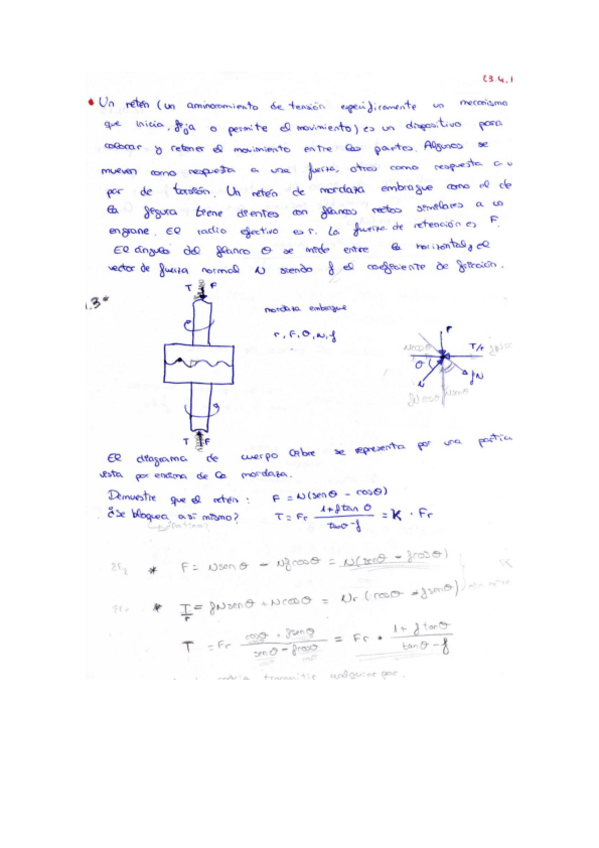 C3.4.1
• Un retén (un aminoramiento de tensión específicamente un mecanismo
que inicia, fija o permite el movimiento) es un dispositivo para
colocar y retener el movimiento entre las partes. Algunos se
mueven como respuesta a una fuerza, otros como respuesta a u
par de torsión. Un retén de mordaza embrague como el de
la figura tiene dientes con flancos rectos similares a un
engrane. El radio efectivo es r. La fuerza de retención es F.
El ángulo del flanco θ se mide entre la horizontal y el
vector de fuerza normal N siendo f el coeficiente de fricción.
T F
1.3=
mordaza embrague
r, F, θ, N, f
F
Ncosθ
T/r
θ
fN
N
T F
El diagrama de cuerpo libre se representa por una partíc
vista por encima de la mordaza.
Demuestre que el retén: F = N(senθ - cosθ)
¿Se bloquea a sí mismo? T = Fr (1+f tanθ)/(tanθ-f) = K · Fr
* F = Nsenθ - Nfcosθ = N(senθ - fcosθ)
* T/r = fNsenθ + Ncosθ = Nr (cosθ + fsenθ)
T = Fr (cosθ + fsenθ)/(senθ - fcosθ) = Fr · (1+f tanθ)/(tanθ-f)
transmitir cualquier par.